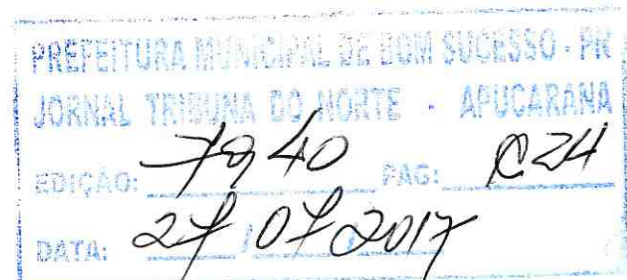 PREFEITURA MUNICIPAL DE BOM SUCESSO - PR
JORNAL TRIBUNA DO NORTE - APUCARANA
EDIÇÃO: 7940 PAG: C24
DATA: 27/07/2017